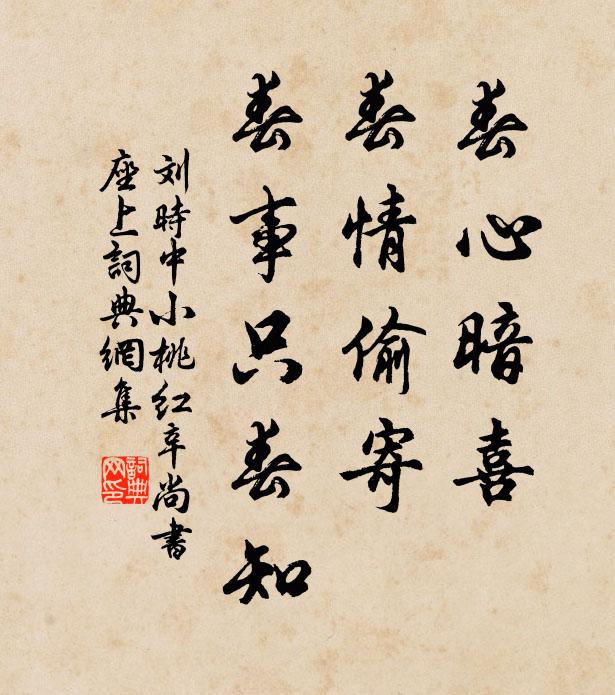 春心暗喜
春情偷寄
春事只春知
刘時中小桃红辛尚書
座上詞典網集
詞典
网印